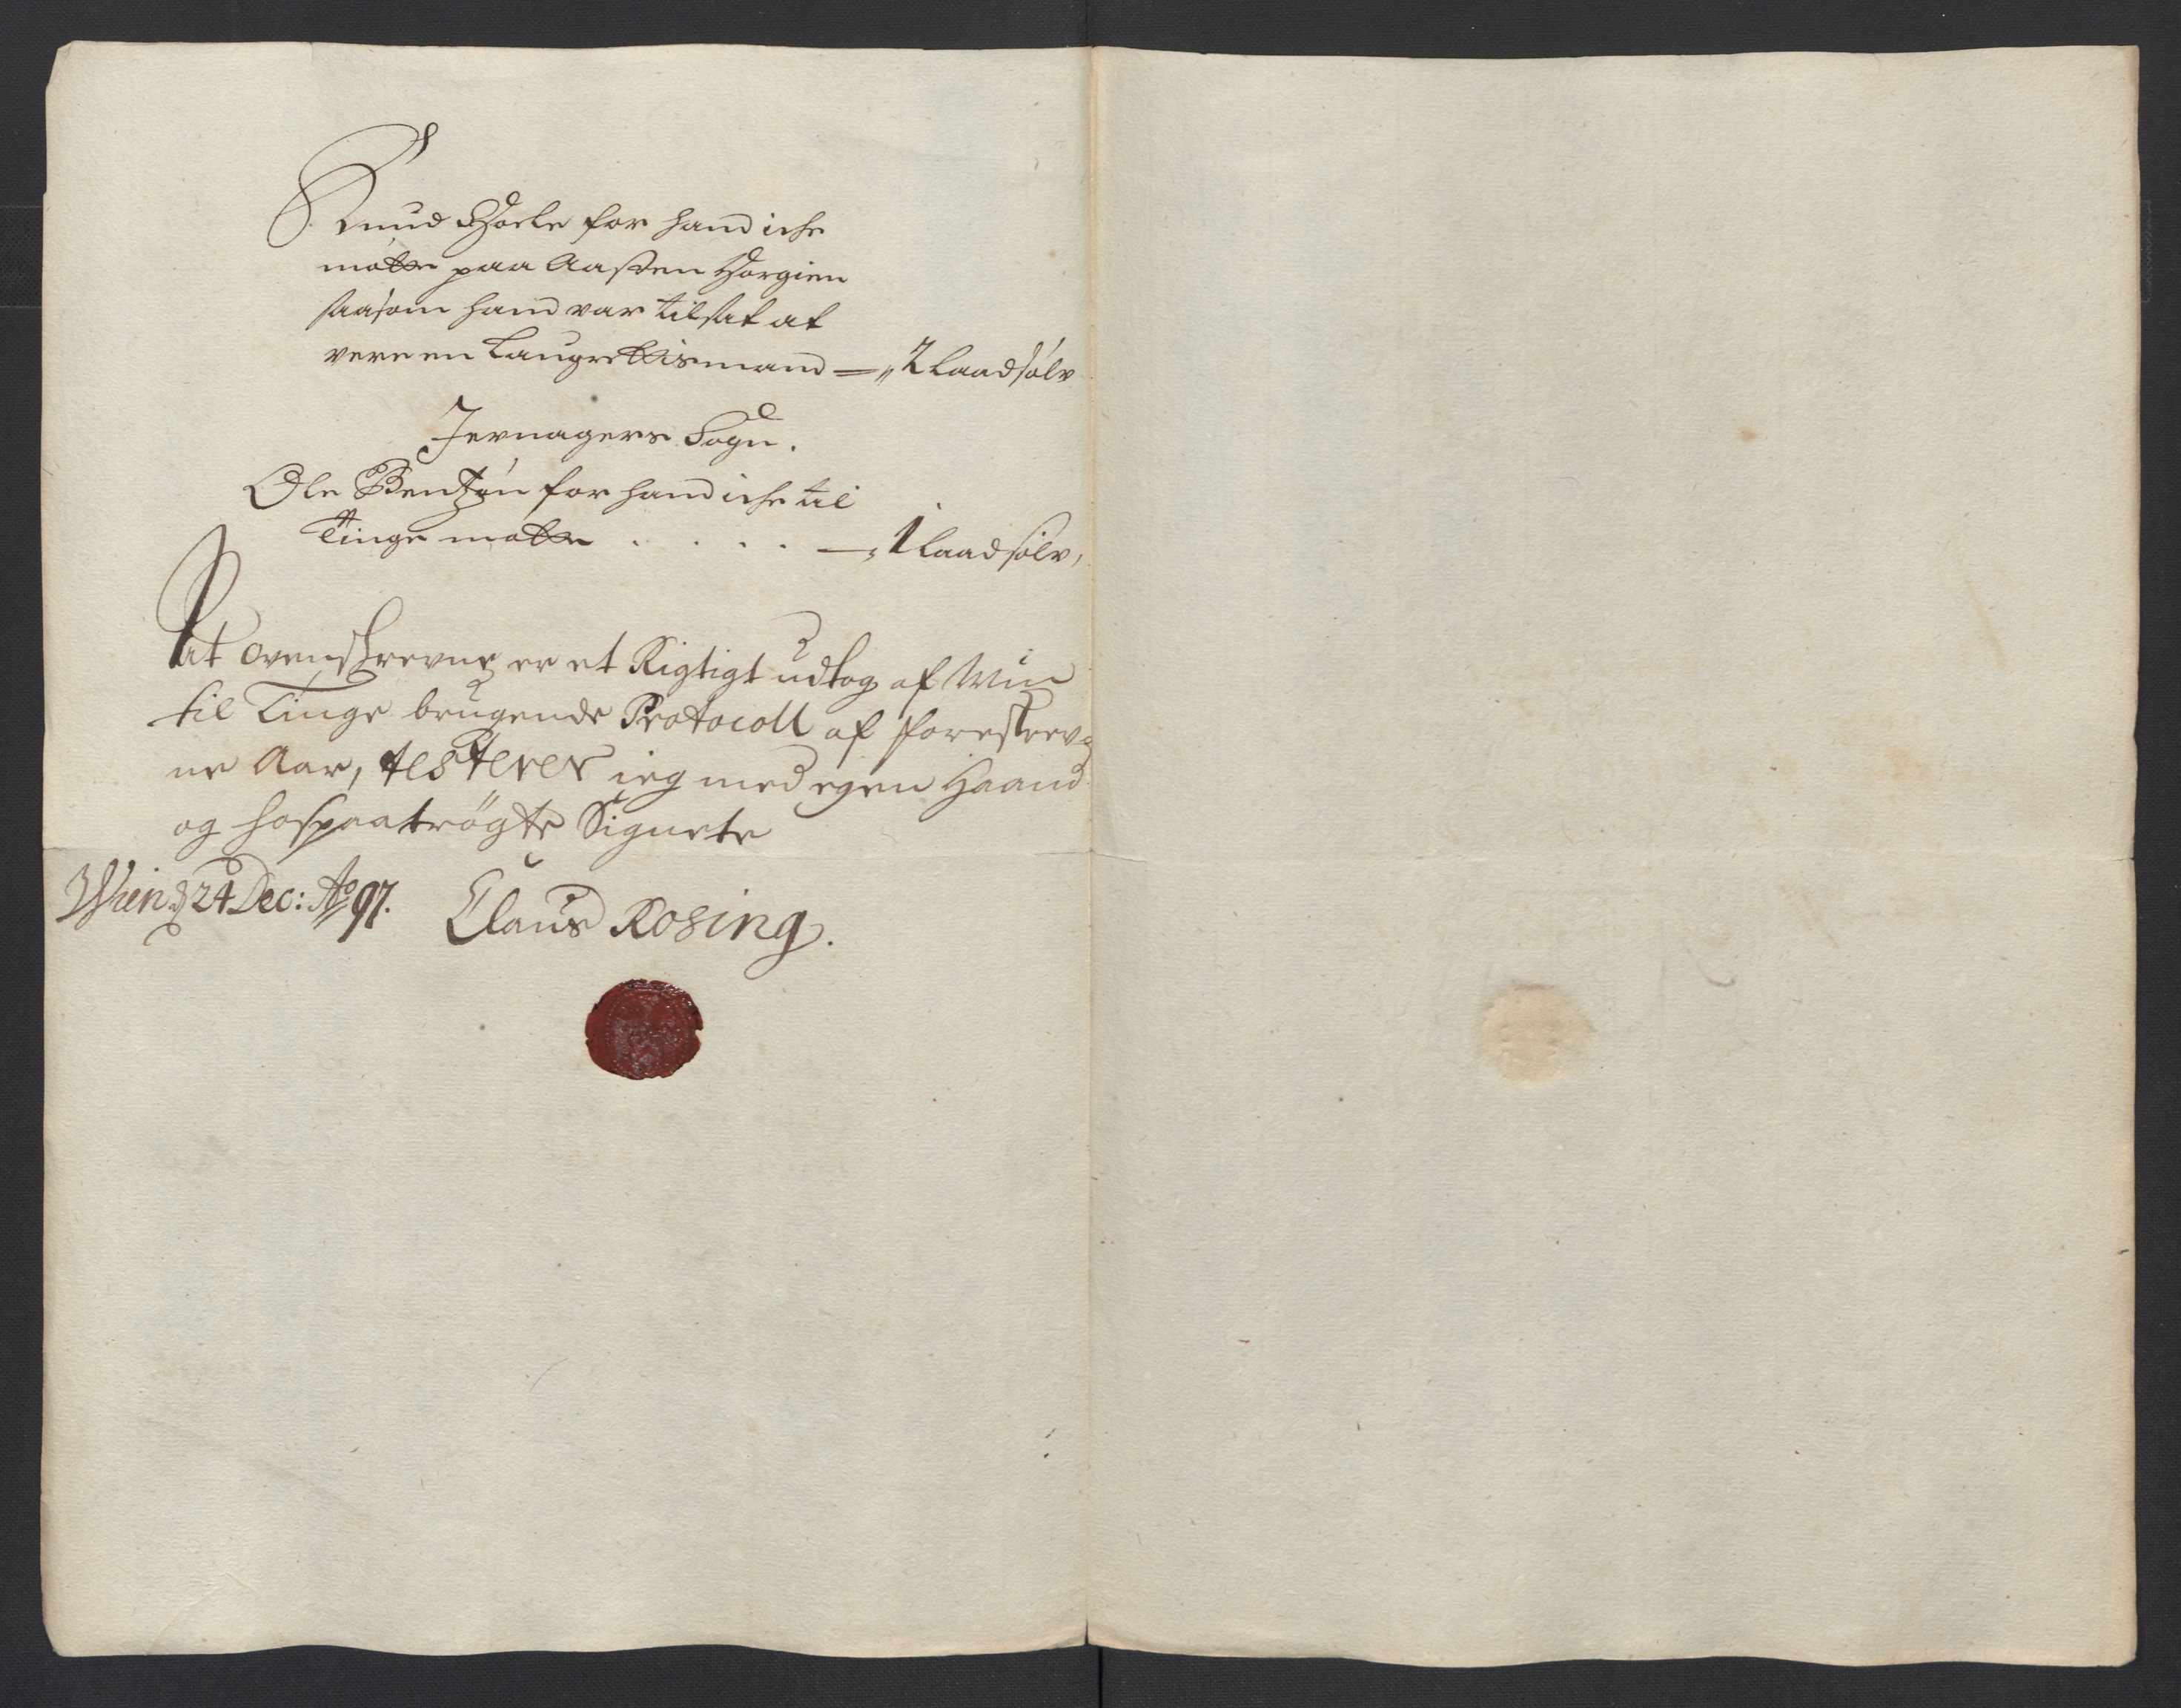 Knud for hand iche
møtte paa Aasten
saasom hand var tilsat at
vere en Laugrettismand — 2 Laad sølv
Jevnagers Sogn.
Ole Bentzøn for hand iche til
Tinge møtte . . . . — 1 Laad sølv,
At ovenskrevne er et Rigtigt udtog af Min
til Tinge brugende Protocoll af foreskrev=
ne Aar, testerer ieg med egen Haand
og hospaatrøgte Signete
Wien d 24 Dec: Ao 97.
Claus Rosing.